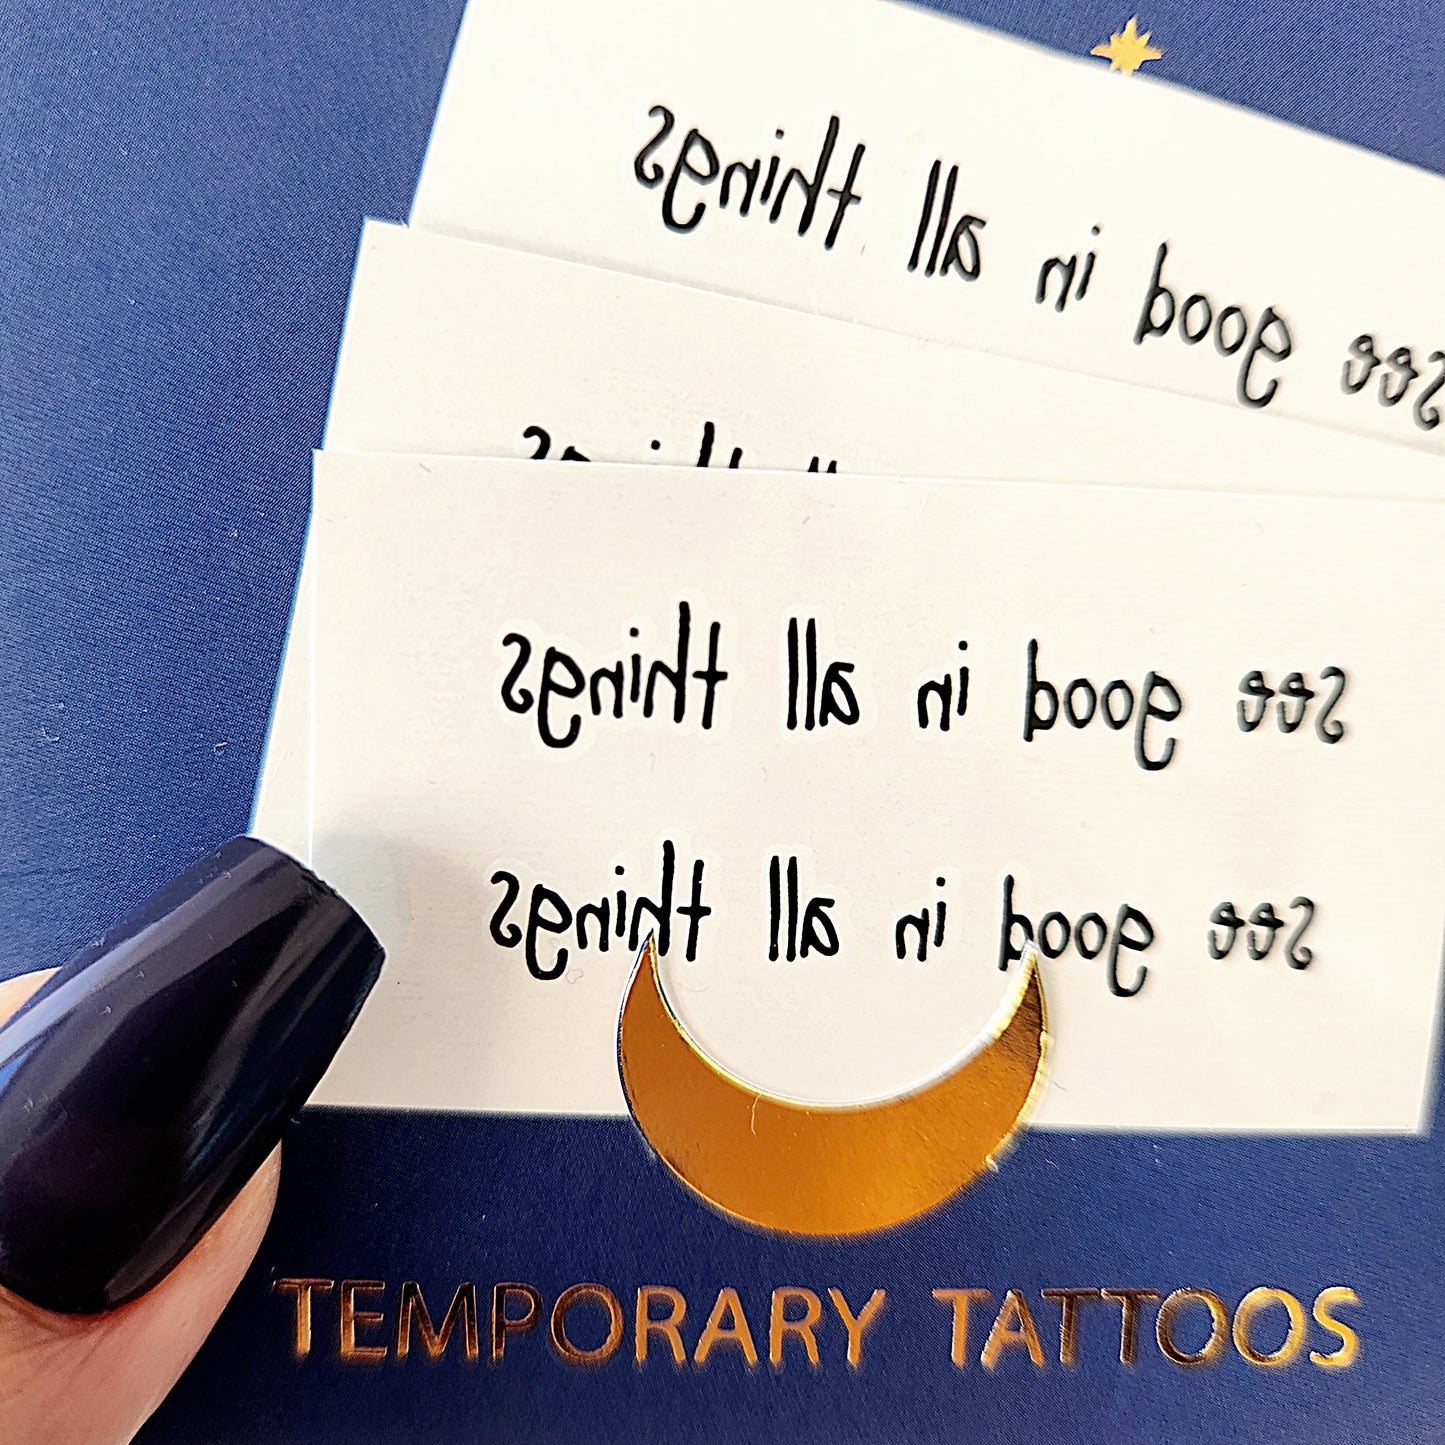 see good in all things
things
see good in all things
see good in all things
TEMPORARY TATTOOS